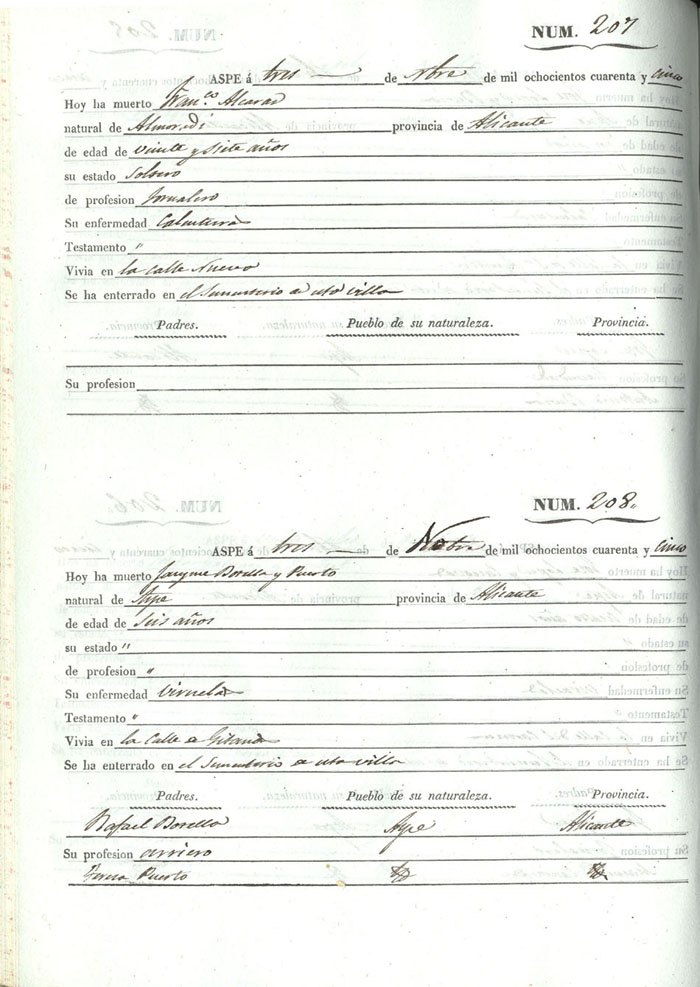 NUM. 207
ASPE á tres — de Nbre de mil ochocientos cuarenta y cinco
Hoy ha muerto Franco. Alcaraz
natural de Almoradi provincia de Alicante
de edad de veinte y siete años
su estado Soltero
de profesion Jornalero
Su enfermedad Calentura
Testamento "
Vivia en la calle Nueva
Se ha enterrado en el Sementerio de esta villa
Padres. Pueblo de su naturaleza. Provincia.
Su profesion
NUM. 208
ASPE á tres — de Nobre de mil ochocientos cuarenta y cinco
Hoy ha muerto Jayme Borella y Puerto
natural de Aspe provincia de Alicante
de edad de seis años
su estado "
de profesion "
Su enfermedad Viruela
Testamento "
Vivia en la Calle de
Se ha enterrado en el Sementerio de esta villa
Padres. Pueblo de su naturaleza. Provincia.
Rafael Borella Aspe Alicante
Su profesion arriero
Teresa Puerto